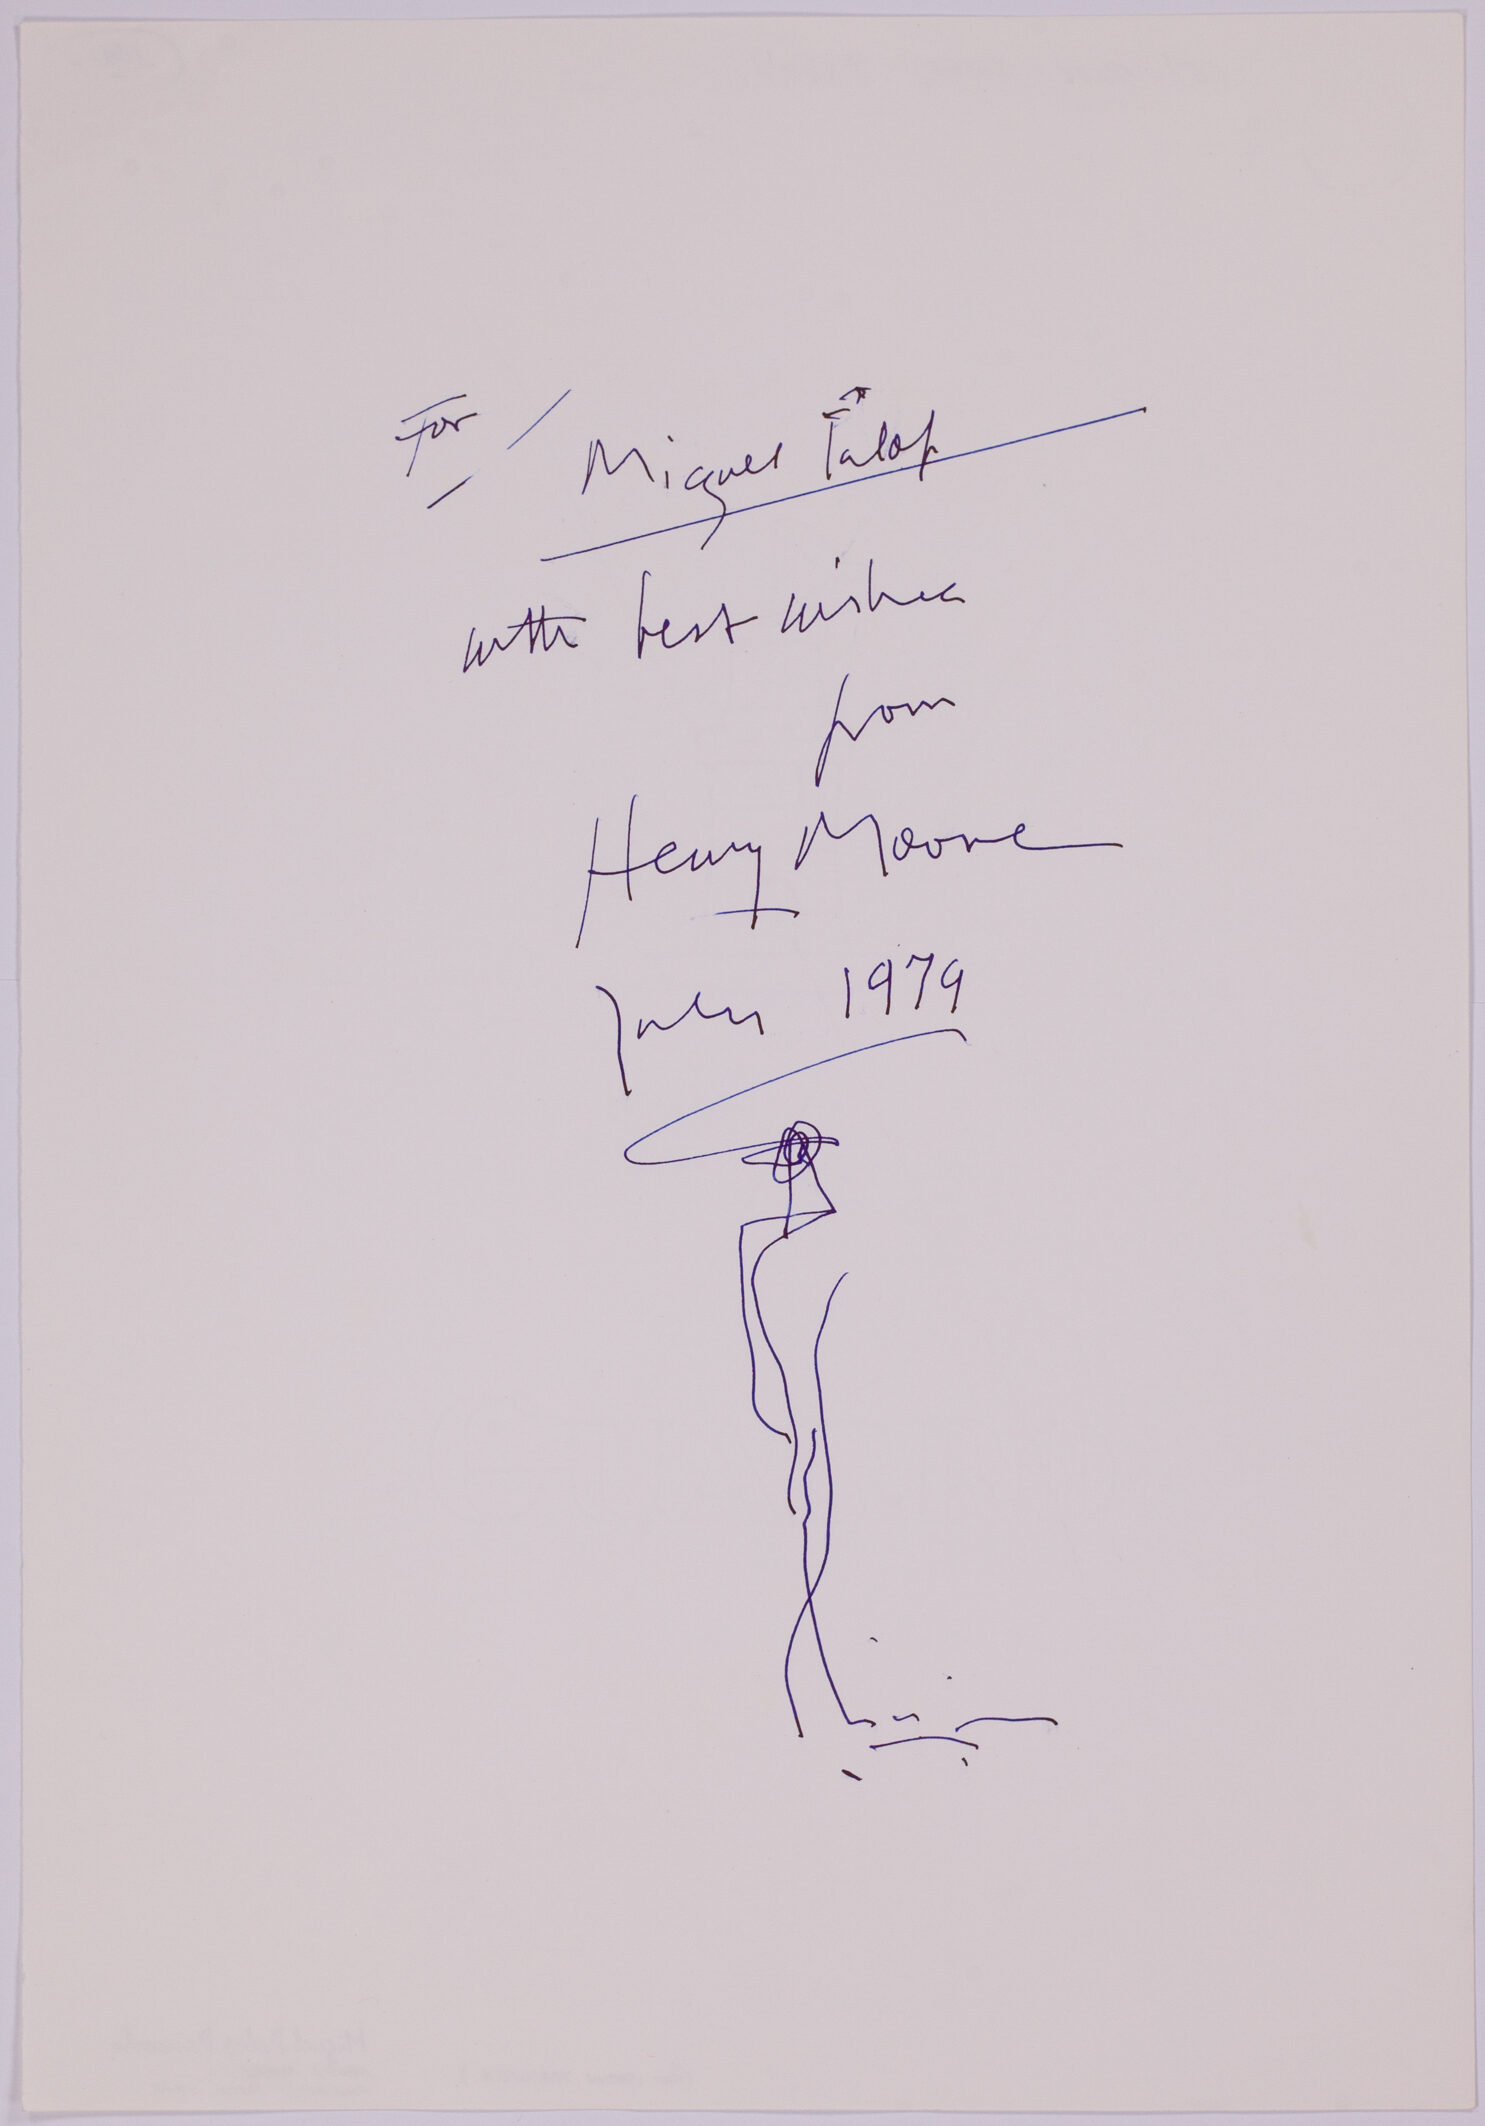 For Miguel Talop
with best wishes
from
Henry Moore
July 1979